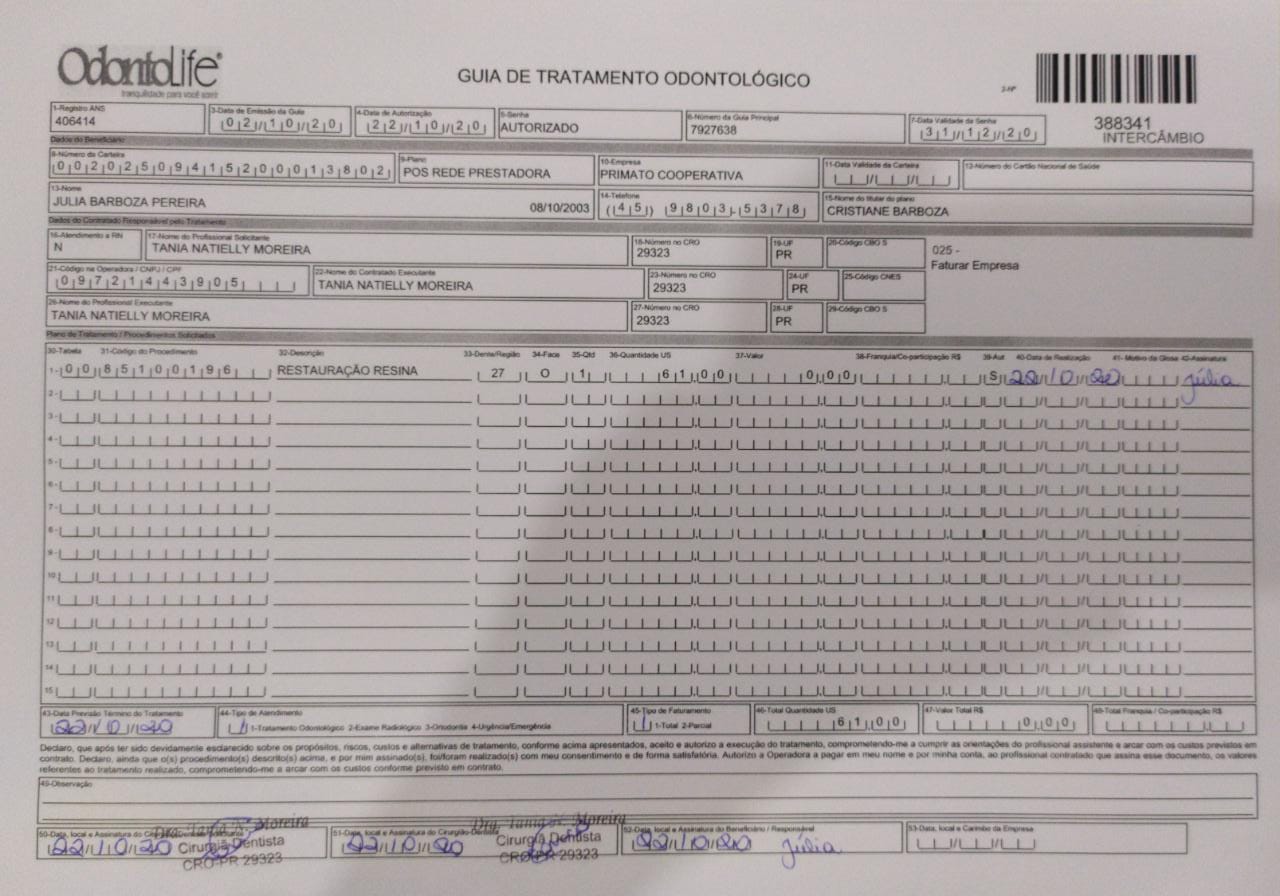 OdontoLife®
tranquilidade para você sorrir
GUIA DE TRATAMENTO ODONTOLÓGICO
2-Nº
388341
INTERCÂMBIO
1-Registro ANS
406414
3-Data de Emissão da Guia
02/10/20
4-Data de Autorização
22/10/20
5-Senha
AUTORIZADO
6-Número da Guia Principal
7927638
7-Data Validade da Senha
31/12/20
Dados do Beneficiário
8-Número da Carteira
00202509415200013802
9-Plano
POS REDE PRESTADORA
10-Empresa
PRIMATO COOPERATIVA
11-Data Validade da Carteira
12-Número do Cartão Nacional de Saúde
13-Nome
JULIA BARBOZA PEREIRA 08/10/2003
14-Telefone
(45) 9803-5378
15-Nome do titular do plano
CRISTIANE BARBOZA
Dados do Contratado Responsável pelo Tratamento
16-Atendimento a RN
N
17-Nome do Profissional Solicitante
TANIA NATIELLY MOREIRA
18-Número no CRO
29323
19-UF
PR
20-Código CBO S
025 -
Faturar Empresa
21-Código na Operadora / CNPJ / CPF
09721443905
22-Nome do Contratado Executante
TANIA NATIELLY MOREIRA
23-Número no CRO
29323
24-UF
PR
25-Código CNES
26-Nome do Profissional Executante
TANIA NATIELLY MOREIRA
27-Número no CRO
29323
28-UF
PR
29-Código CBO S
Plano de Tratamento / Procedimentos Solicitados
30-Tabela 31-Código do Procedimento 32-Descrição 33-Dente/Região 34-Face 35-Qtd 36-Quantidade US 37-Valor 38-Franquia/Co-participação R$ 39-Aut 40-Data de Realização 41- Motivo da Glosa 42-Assinatura
1- 00 85100196 RESTAURAÇÃO RESINA 27 O 1 61,00 0,00 S 22/10/20 Júlia
2-
3-
4-
5-
6-
7-
8-
9-
10-
11-
12-
13-
14-
15-
43-Data Previsão Término do Tratamento
22/10/20
44-Tipo de Atendimento
1 1-Tratamento Odontológico 2-Exame Radiológico 3-Ortodontia 4-Urgência/Emergência
45-Tipo de Faturamento
1 1-Total 2-Parcial
46-Total Quantidade US
61,00
47-Valor Total R$
0,00
48-Total Franquia / Co-participação R$
Declaro, que após ter sido devidamente esclarecido sobre os propósitos, riscos, custos e alternativas de tratamento, conforme acima apresentados, aceito e autorizo a execução do tratamento, comprometendo-me a cumprir as orientações do profissional assistente e arcar com os custos previstos em
contrato. Declaro, ainda que o(s) procedimento(s) descrito(s) acima, e por mim assinado(s), foi/foram realizado(s) com meu consentimento e de forma satisfatória. Autorizo a Operadora a pagar em meu nome e por minha conta, ao profissional contratado que assina esse documento, os valores
referentes ao tratamento realizado, comprometendo-me a arcar com os custos conforme previsto em contrato.
49-Observação
50-Data, local e Assinatura do Cirurgião-Dentista Solicitante
22/10/20
Dra. Tania N. Moreira
Cirurgiã Dentista
CRO-PR 29323
51-Data, local e Assinatura do Cirurgião-Dentista
22/10/20
Dra. Tania N. Moreira
Cirurgiã Dentista
CRO-PR 29323
52-Data, local e Assinatura do Beneficiário / Responsável
22/10/20 Júlia
53-Data, local e Carimbo da Empresa